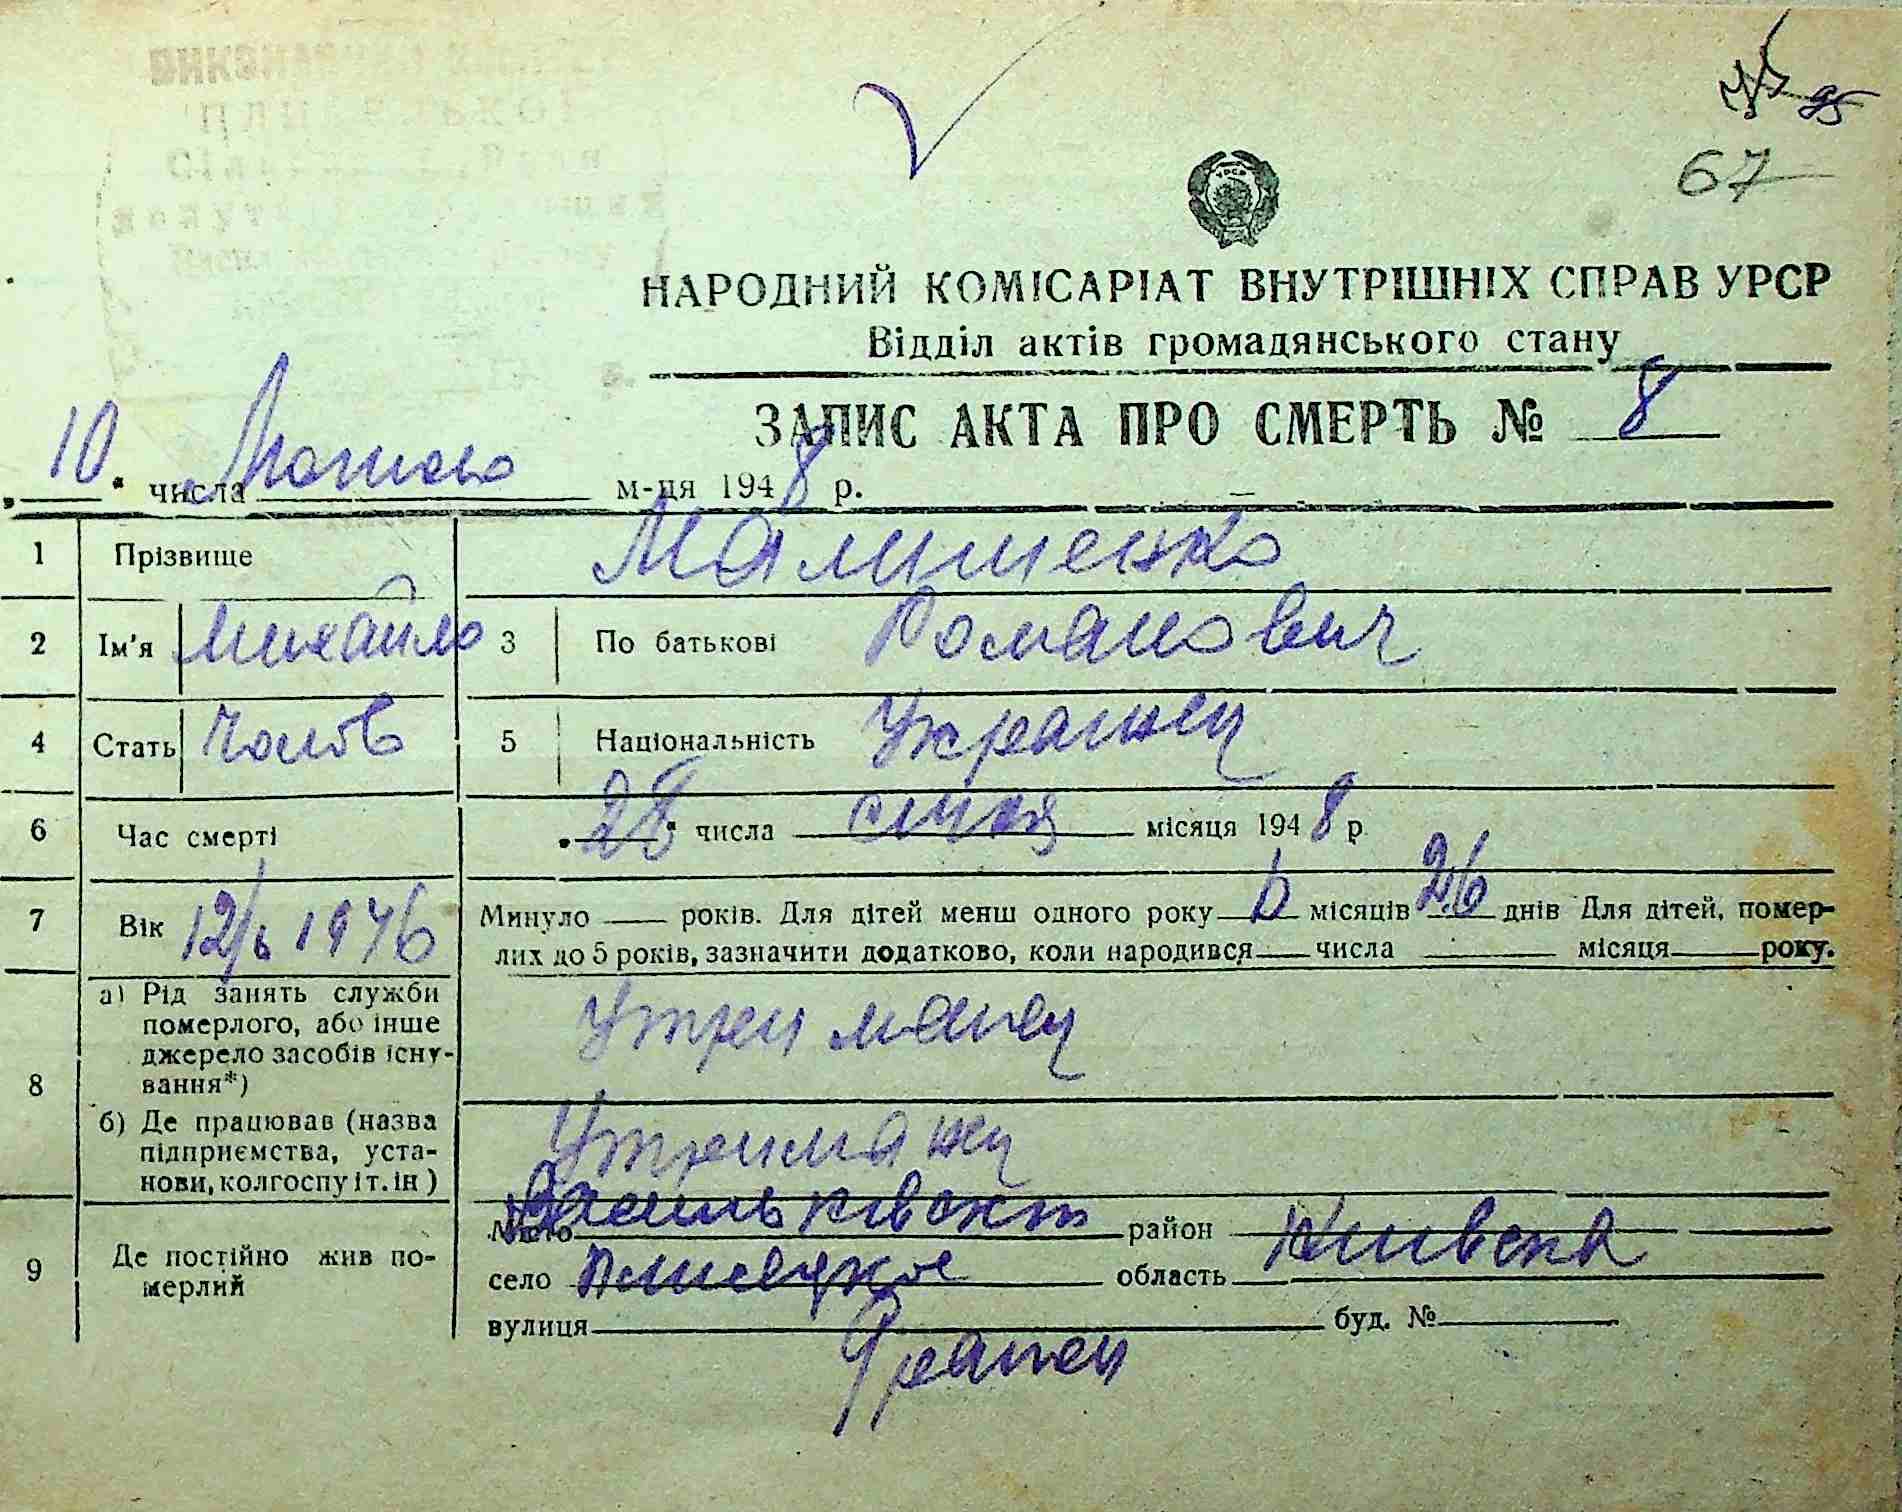 67
УРСР
НАРОДНИЙ КОМІСАРІАТ ВНУТРІШНІХ СПРАВ УРСР
Відділ актів громадянського стану
ЗАПИС АКТА ПРО СМЕРТЬ № 8
„10“ числа Лютого м-ця 1948 р.
1 Прізвище Малишенко
2 Ім'я Михайло 3 По батькові Романович
4 Стать Чолов 5 Національність Украинец
6 Час смерті „28“ числа січня місяця 1948 р
7 Вік 12/6 1946 Минуло — років. Для дітей менш одного року 6 місяців 26 днів Для дітей, помер-
лих до 5 років, зазначити додатково, коли народився — числа — місяця — року.
8 а) Рід занять служби померлого, або інше джерело засобів існу-вання*) Утриманец
б) Де працював (назва підприємства, уста-нови, колгоспу і т. ін) Утриманец
9 Де постійно жив по-мерлий
Місто Васильківськ район
село Плисецкое область Київска
вулиця буд. №